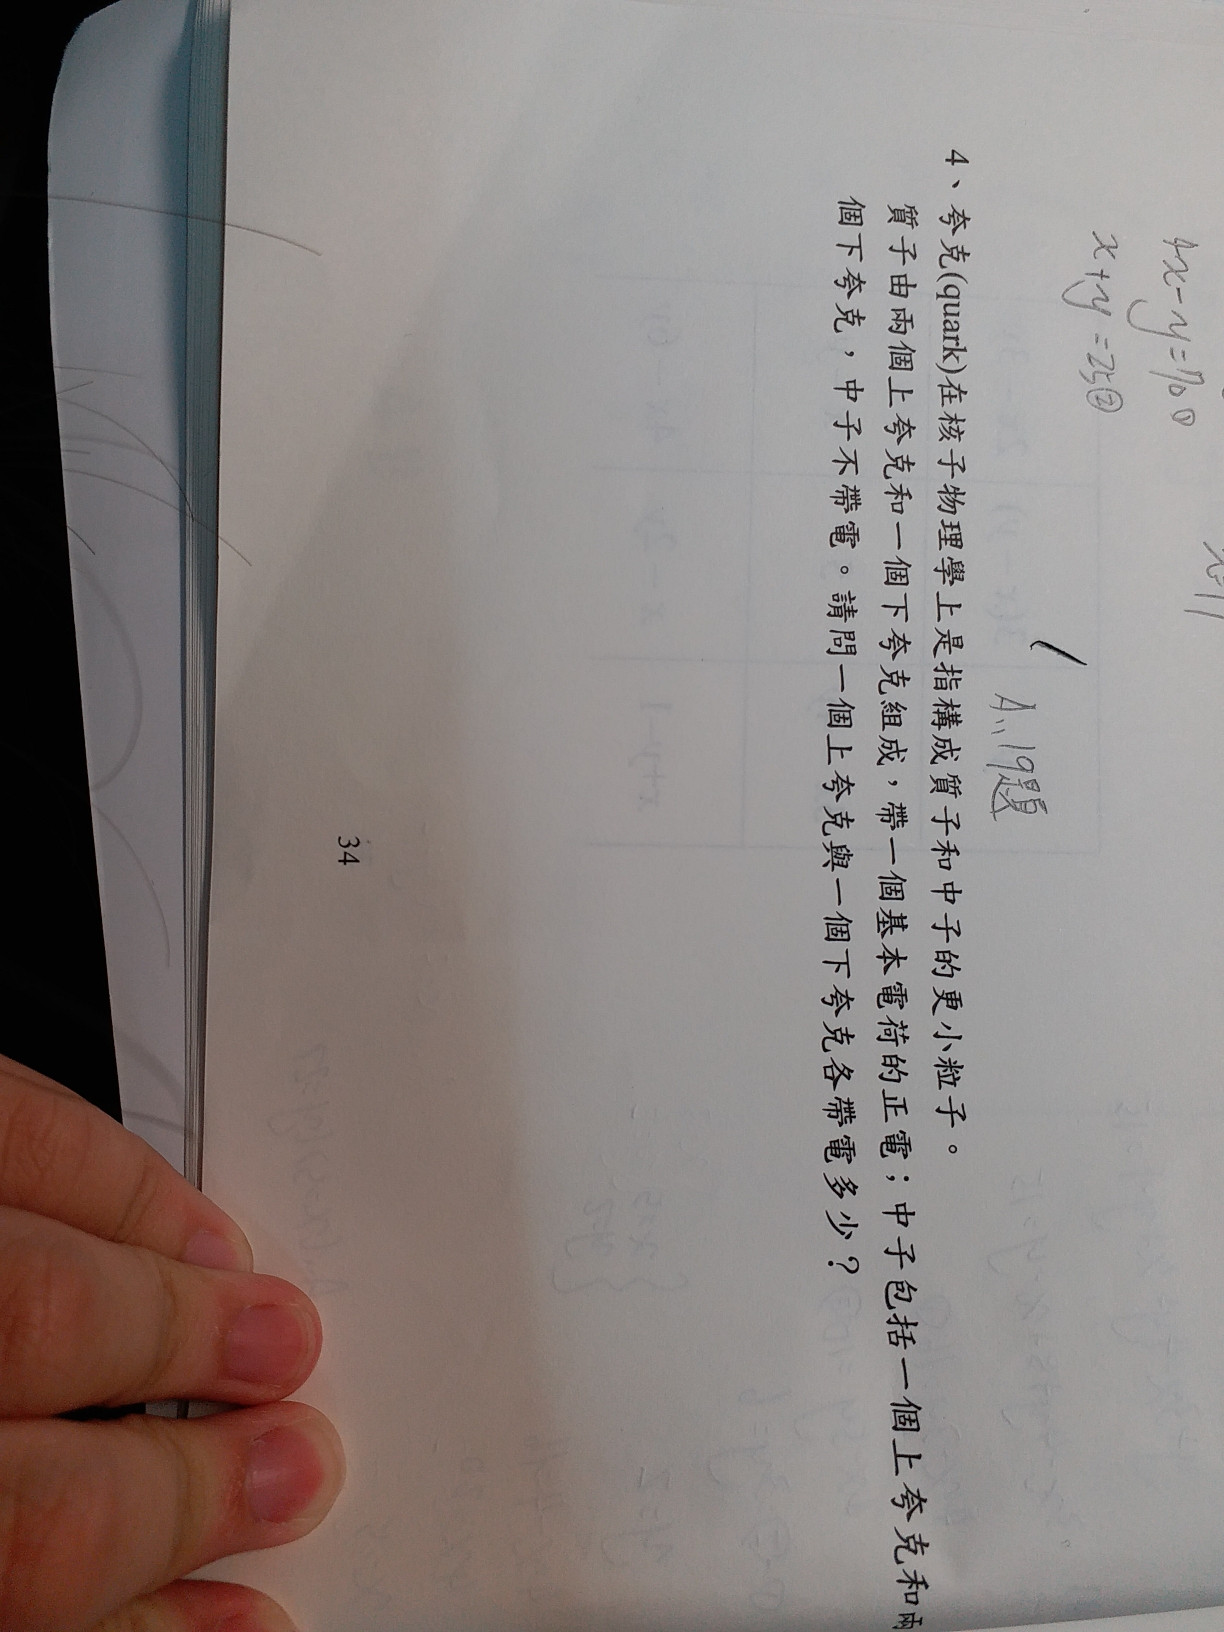 4x-y=70①
x+y=25②
A:19題
4、夸克(quark)在核子物理學上是指構成質子和中子的更小粒子。
質子由兩個上夸克和一個下夸克組成，帶一個基本電荷的正電；中子包括一個上夸克和兩
個下夸克，中子不帶電。請問一個上夸克與一個下夸克各帶電多少？
34